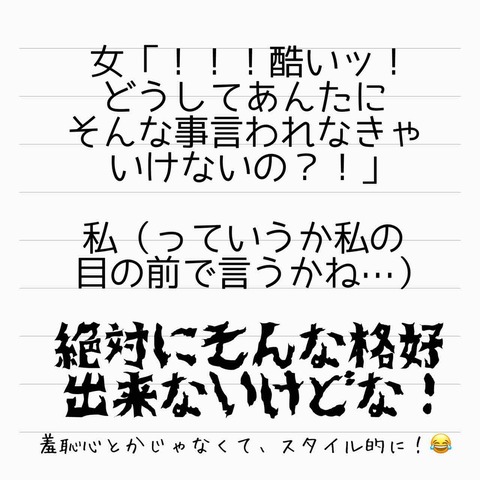 女「！！！酷いッ！
どうしてあんたに
そんな事言われなきゃ
いけないの？！」
私（っていうか私の
目の前で言うかね…）
絶対にそんな格好
出来ないけどな！
羞恥心とかじゃなくて、スタイル的に！😂